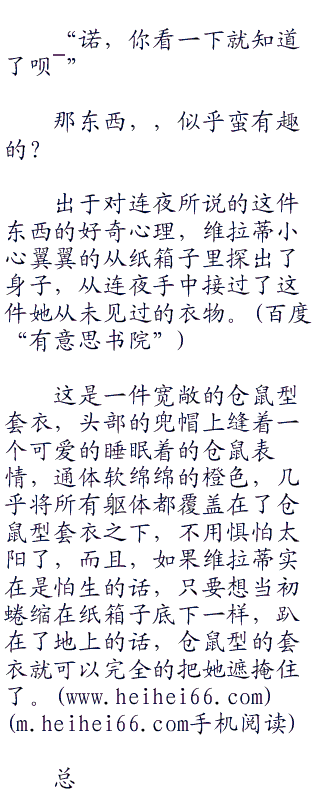 “诺，你看一下就知道
了呗~”
那东西，，似乎蛮有趣
的？
出于对连夜所说的这件
东西的好奇心理，维拉蒂小
心翼翼的从纸箱子里探出了
身子，从连夜手中接过了这
件她从未见过的衣物。(百度
“有意思书院”)
这是一件宽敞的仓鼠型
套衣，头部的兜帽上缝着一
个可爱的睡眠着的仓鼠表
情，通体软绵绵的橙色，几
乎将所有躯体都覆盖在了仓
鼠型套衣之下，不用惧怕太
阳了，而且，如果维拉蒂实
在是怕生的话，只要想当初
蜷缩在纸箱子底下一样，趴
在了地上的话，仓鼠型的套
衣就可以完全的把她遮掩住
了。(www.heihei66.com)
(m.heihei66.com手机阅读)
总